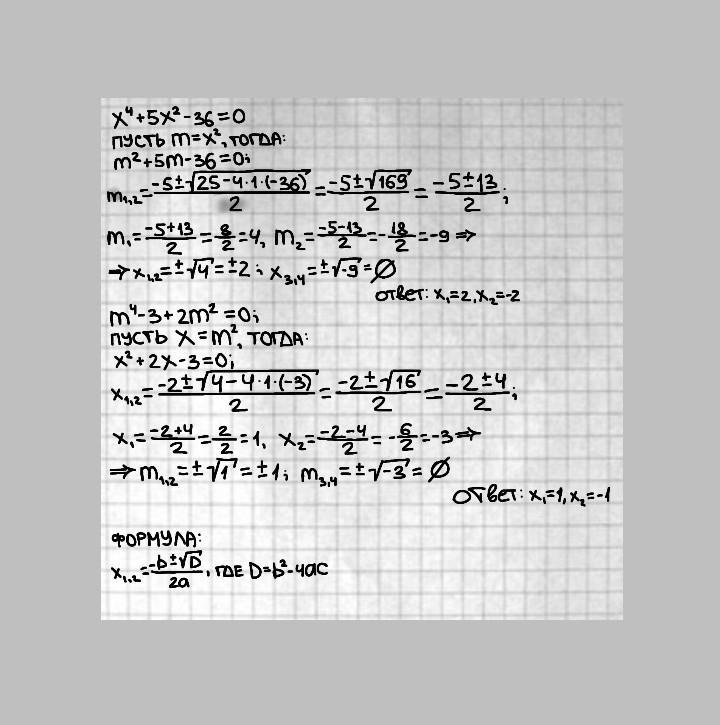 x⁴+5x²-36=0
ПУСТЬ m=x², ТОГДА:
m²+5m-36=0;
m₁,₂=(-5±√(25-4·1·(-36)))/2=(-5±√169)/2=(-5±13)/2;
m₁=(-5+13)/2=8/2=4, m₂=(-5-13)/2=-18/2=-9⇒
⇒x₁,₂=±√4=±2; x₃,₄=±√-9=∅
ОТВЕТ: x₁=2, x₂=-2
m⁴-3+2m²=0;
ПУСТЬ x=m², ТОГДА:
x²+2x-3=0;
x₁,₂=(-2±√(4-4·1·(-3)))/2=(-2±√16)/2=(-2±4)/2;
x₁=(-2+4)/2=2/2=1, x₂=(-2-4)/2=-6/2=-3⇒
⇒m₁,₂=±√1=±1; m₃,₄=±√-3=∅
ОТВЕТ: x₁=1, x₂=-1
ФОРМУЛА:
x₁,₂=(-b±√D)/2a, ГДЕ D=b²-4ac